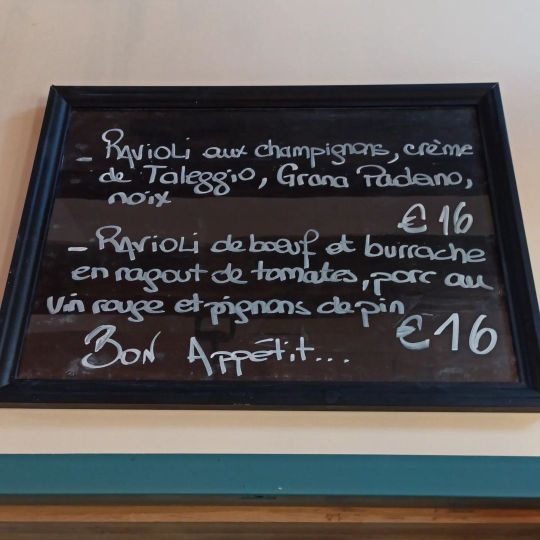 - RAVIOLI aux champignons, crème
de Taleggio, Grana Padano,
noix
€16
- RAVIOLI de boeuf et burrache
en ragout de tomates, porc au
vin rouge et pignons de pin
€16
BON APPÉTIT...